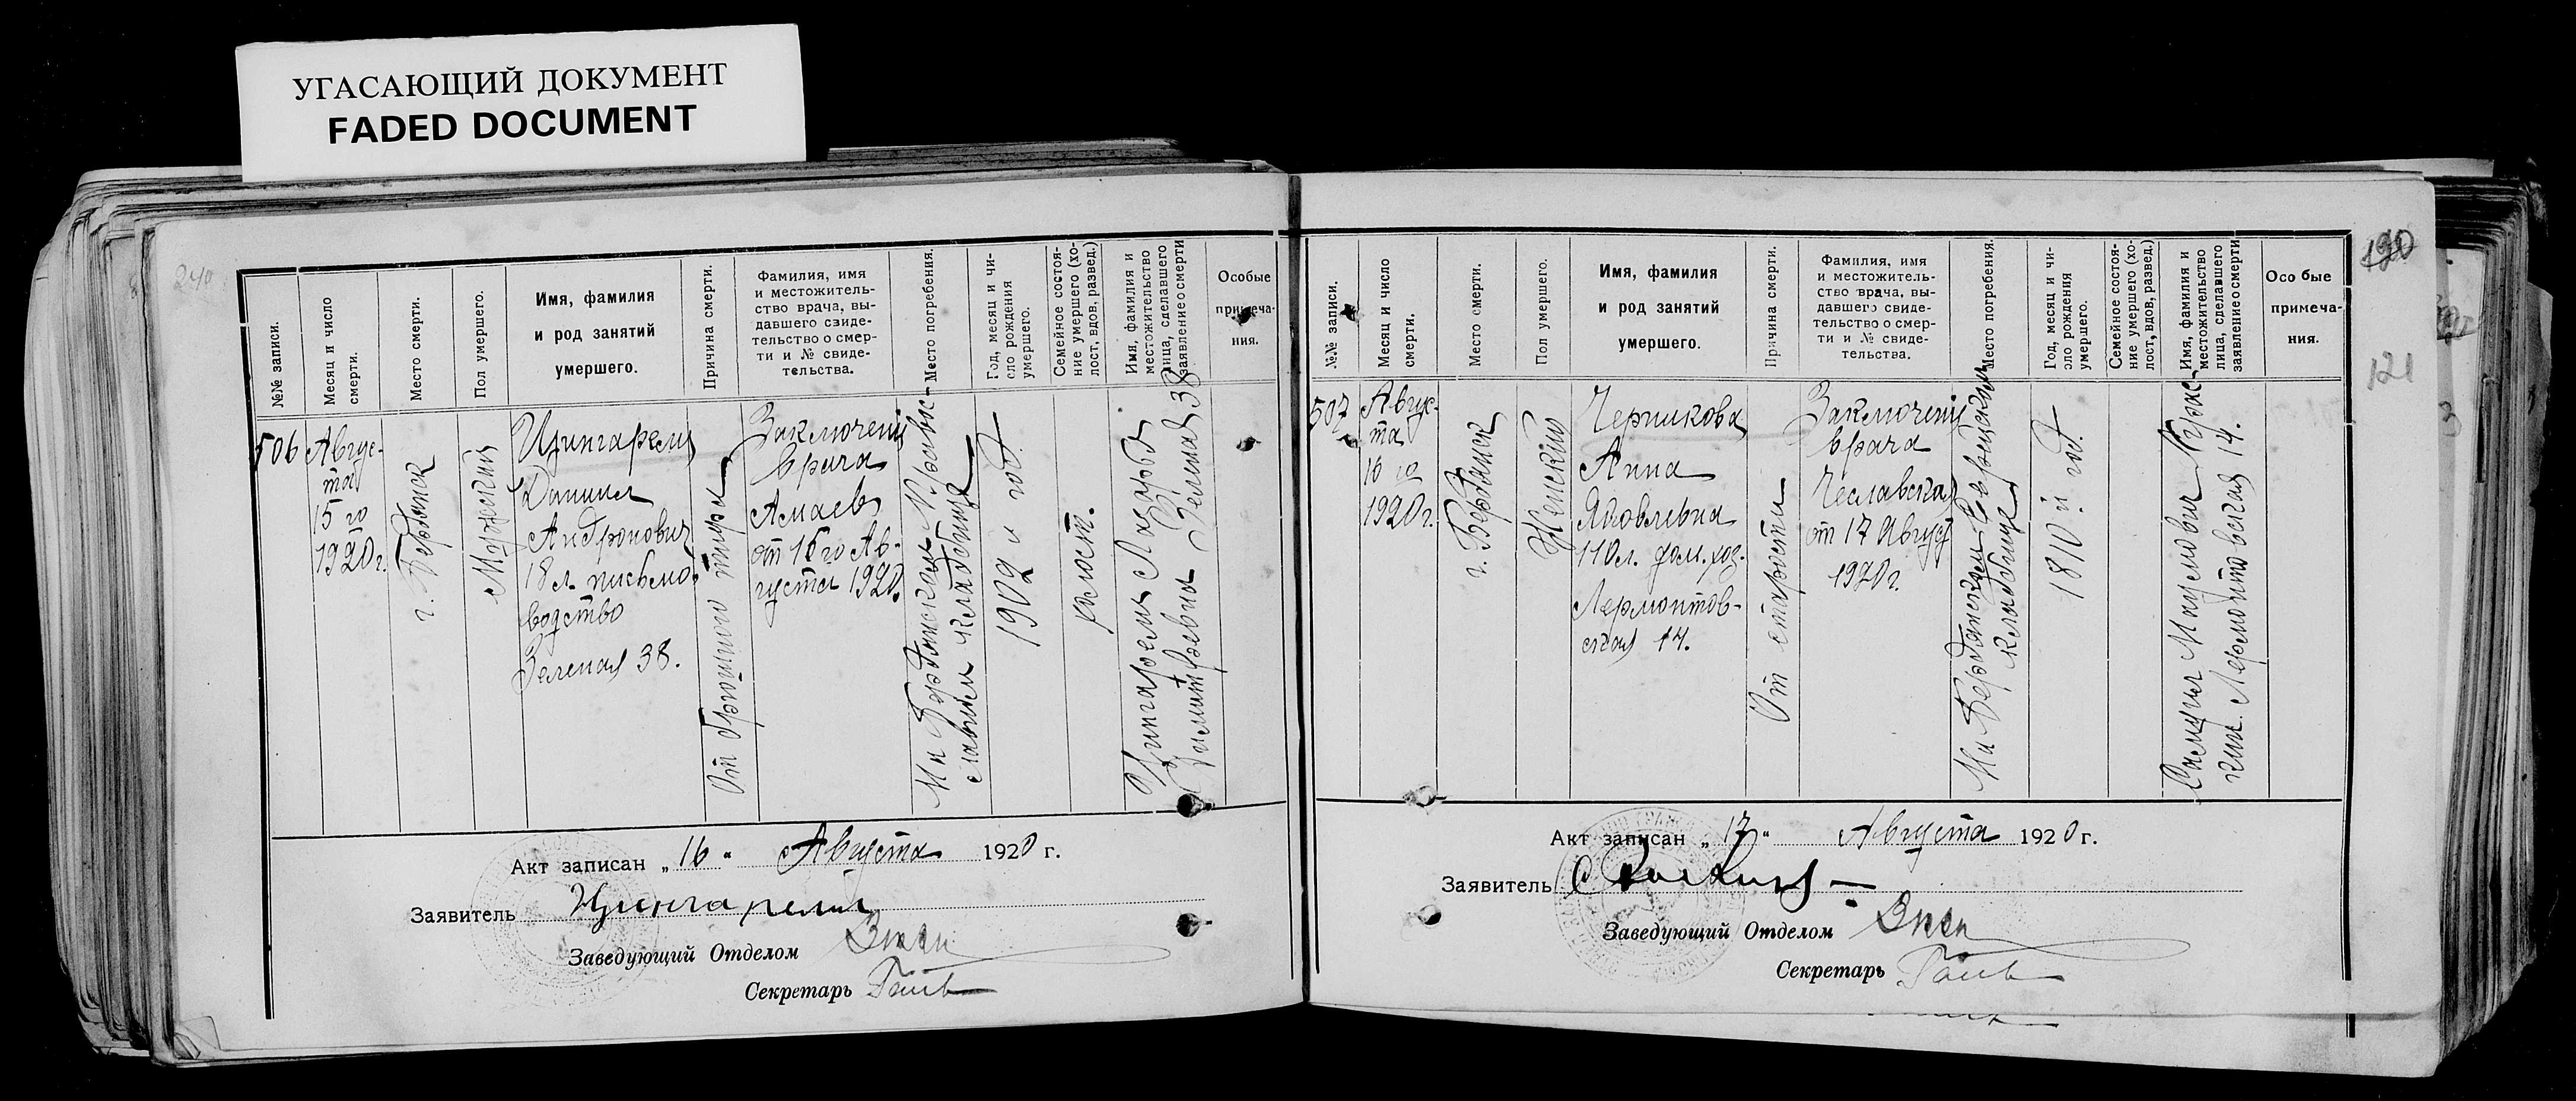 УГАСАЮЩИЙ ДОКУМЕНТ
FADED DOCUMENT
240
№№ записи.
Месяц и число
смерти.
Место смерти.
Пол умершего.
Имя, фамилия
и род занятий
умершего.
Причина смерти.
Фамилия, имя
и местожитель-
ство врача, вы-
давшего свиде-
тельство о смер-
ти и № свиде-
тельства.
Место погребения.
Год, месяц и чи-
сло рождения
умершего.
Семейное состоя-
ние умершего (хо-
лост, вдов, развед.)
Имя, фамилия и
местожительство
лица, сделавшего
заявление о смерти
Особые
примеча-
ния.
506
Авгус-
та
15 го
1920 г.
г. Бердянск
Мужский
Цингарели
Даниил
Андронович
18 л. письмо-
водство
Зеленая 38.
От брюшного тифа
Заключение
врача
от 16 го Ав-
густа 1920.
На Бердянском Правос-
лавном кладбище
1902 й год
холост.
Цингарели
Зеленая 38
Акт записан „16“ Августа 1920 г.
Заявитель Цингарели
Заведующий Отделом
Секретарь
№№ записи.
Месяц и число
смерти.
Место смерти.
Пол умершего.
Имя, фамилия
и род занятий
умершего.
Причина смерти.
Фамилия, имя
и местожитель-
ство врача, вы-
давшего свиде-
тельство о смер-
ти и № свиде-
тельства.
Место погребения.
Год, месяц и чи-
сло рождения
умершего.
Семейное состоя-
ние умершего (хо-
лост, вдов, развед.)
Имя, фамилия и
местожительство
лица, сделавшего
заявление о смерти
Особые
примеча-
ния.
121
507
Авгус-
та
16 го
1920 г.
г. Бердянск
Женский
Черникова
Анна
Яковлевна
110 л. дом. хоз.
Лермонтов-
ская 14.
От старости
Заключение
врача
Чеславская
от 17 Август
1920 г.
На Бердянском Еврейском
кладбище
1810 й год.
Лермонтовская 14.
Акт записан „17“ Августа 1920 г.
Заявитель
Заведующий Отделом
Секретарь